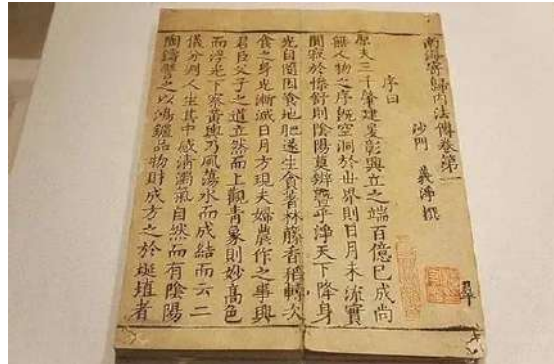 南海寄歸內法傳卷第一
沙門 義淨撰
序曰
原夫三千肇建爰彰興立之端百億已成尚
無人物之序既空洞於世界則日月未流實
閴寂於慘舒則陰陽莫辨暨乎淨天下降身
光自隨因飡地肥遂生貪著林藤香稻轉次
食之身光漸滅日月方現夫婦農作之事興
君臣父子之道立然而上觀青象則妙高色
而浮光下察黃輿乃風蕩水而成結而云二
儀分判人生其中感清濁氣自然而有陰陽
陶鑄譬之以鴻鑪品物財成方之於埏埴者